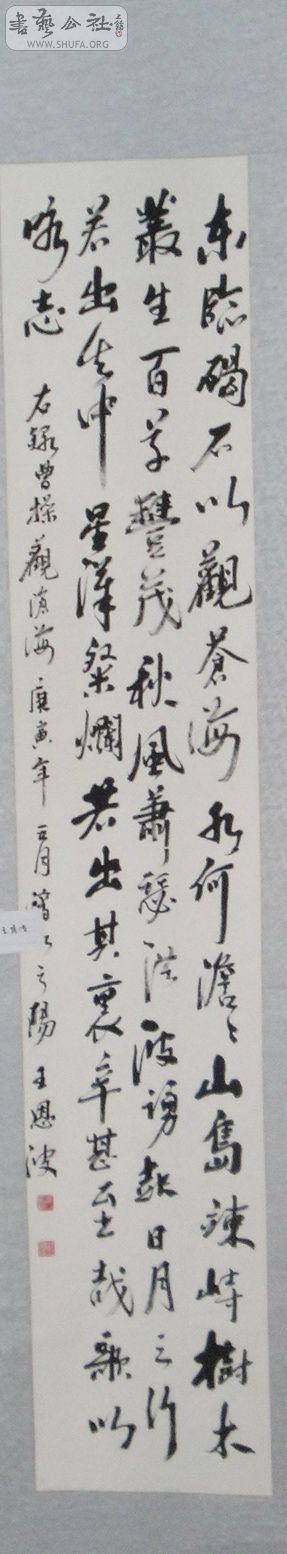 書藝公社
WWW.SHUFA.ORG
東臨碣石以觀蒼海水何澹〻山島竦峙樹木
叢生百草豐茂秋風蕭瑟洪波湧起日月之行
若出其中星漢粲爛若出其裏幸甚至哉歌以
咏志 右録曹操觀滄海 庚寅年 月 之陽 王恩波